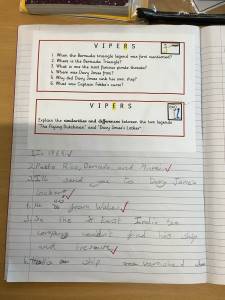 VIPERS
1. When the Bermuda triangle legend was first mentioned?
2. Where is the Bermuda Triangle?
3. What is one the most famous pirate threats?
4. Where was Davy Jones from?
5. Why did Davy Jones sink his own ship?
6. What was Captain Fokke's curse?
VIPERS
Explain the similarities and differences between the two legends
"The Flying Dutchman" and "Davy Jones's Locker"
1. In 1964
2. Puerto Rico, Bermuda, and Miami
3. I'll send you to Davy Jones
locker
4. He is from Wales
5. So the East India
company couldn't find his ship
and treasure
6. ship